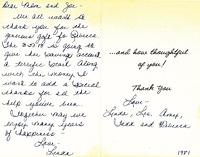 Dear Mom and Joe -
We all want to
thank you for the
generous gift to Bianca
The $50.00 is going to
give her savings account
a terrific start. Along
with the money I
want to add a special
thanks for all the
help you've been.
Together may we
enjoy many years
of happiness -
Love,
Linda
...and how thoughtful
of you!
Thank You
Love,
Linda, Lee, Amy,
and Bianca
1981